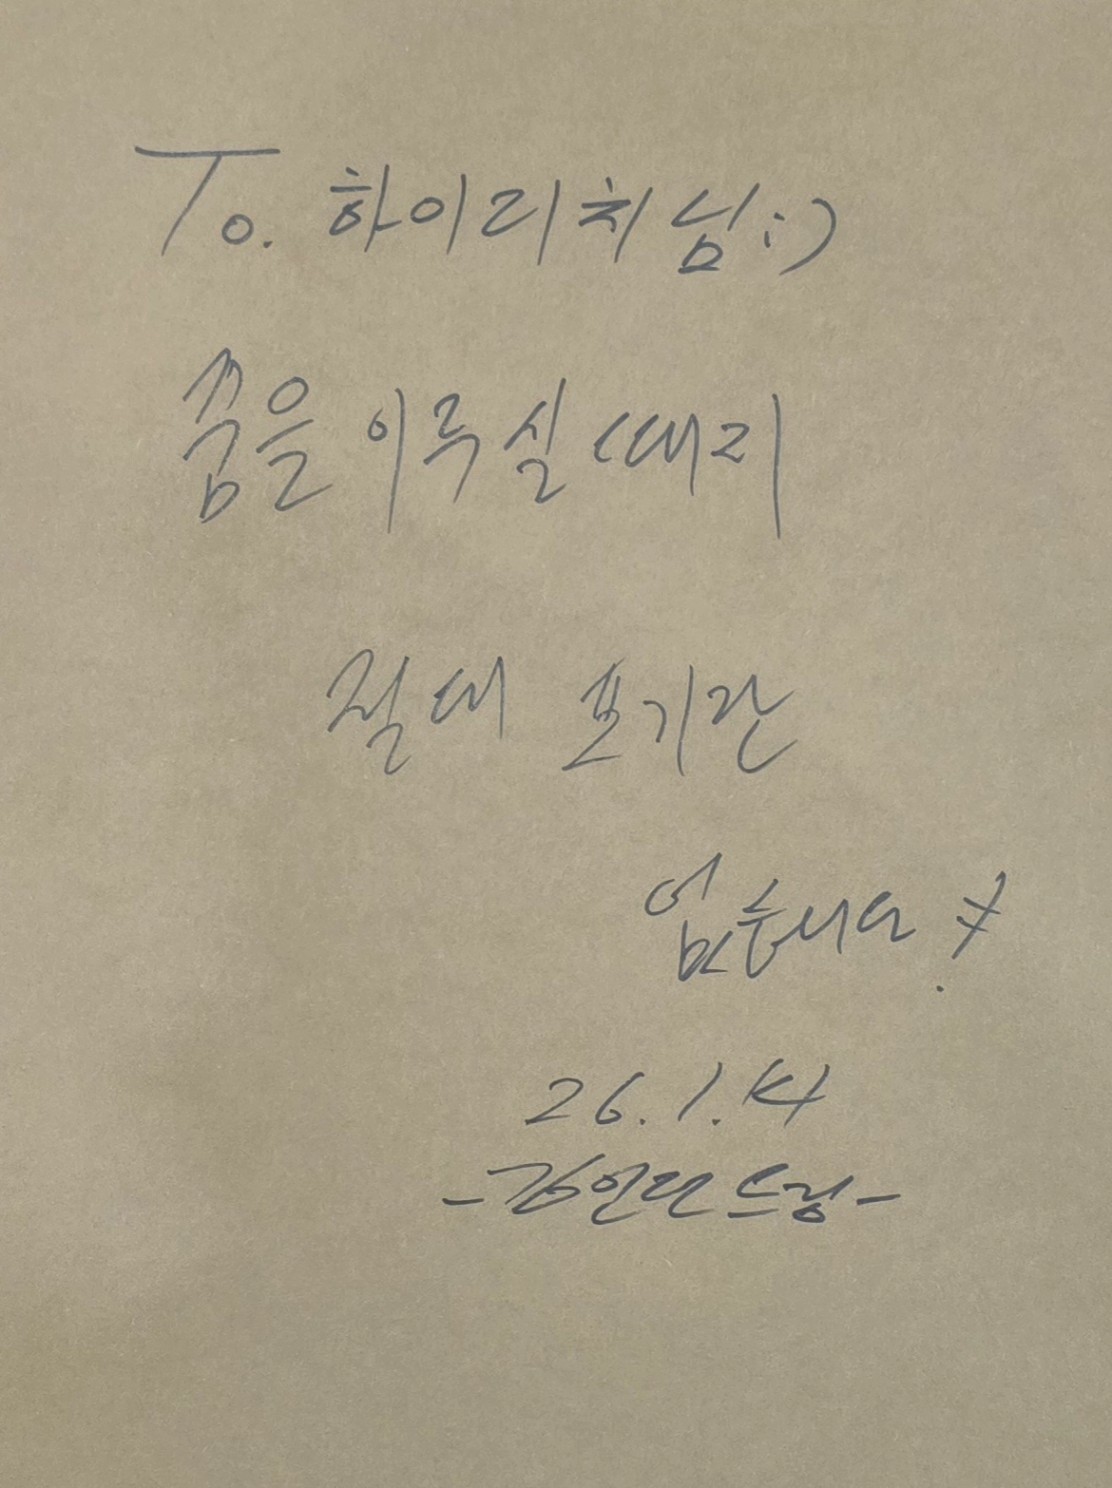 To. 하이리치님:)
꿈을 이루실 때까지
절대 포기란
없습니다.
26.1.14
-김인드라-